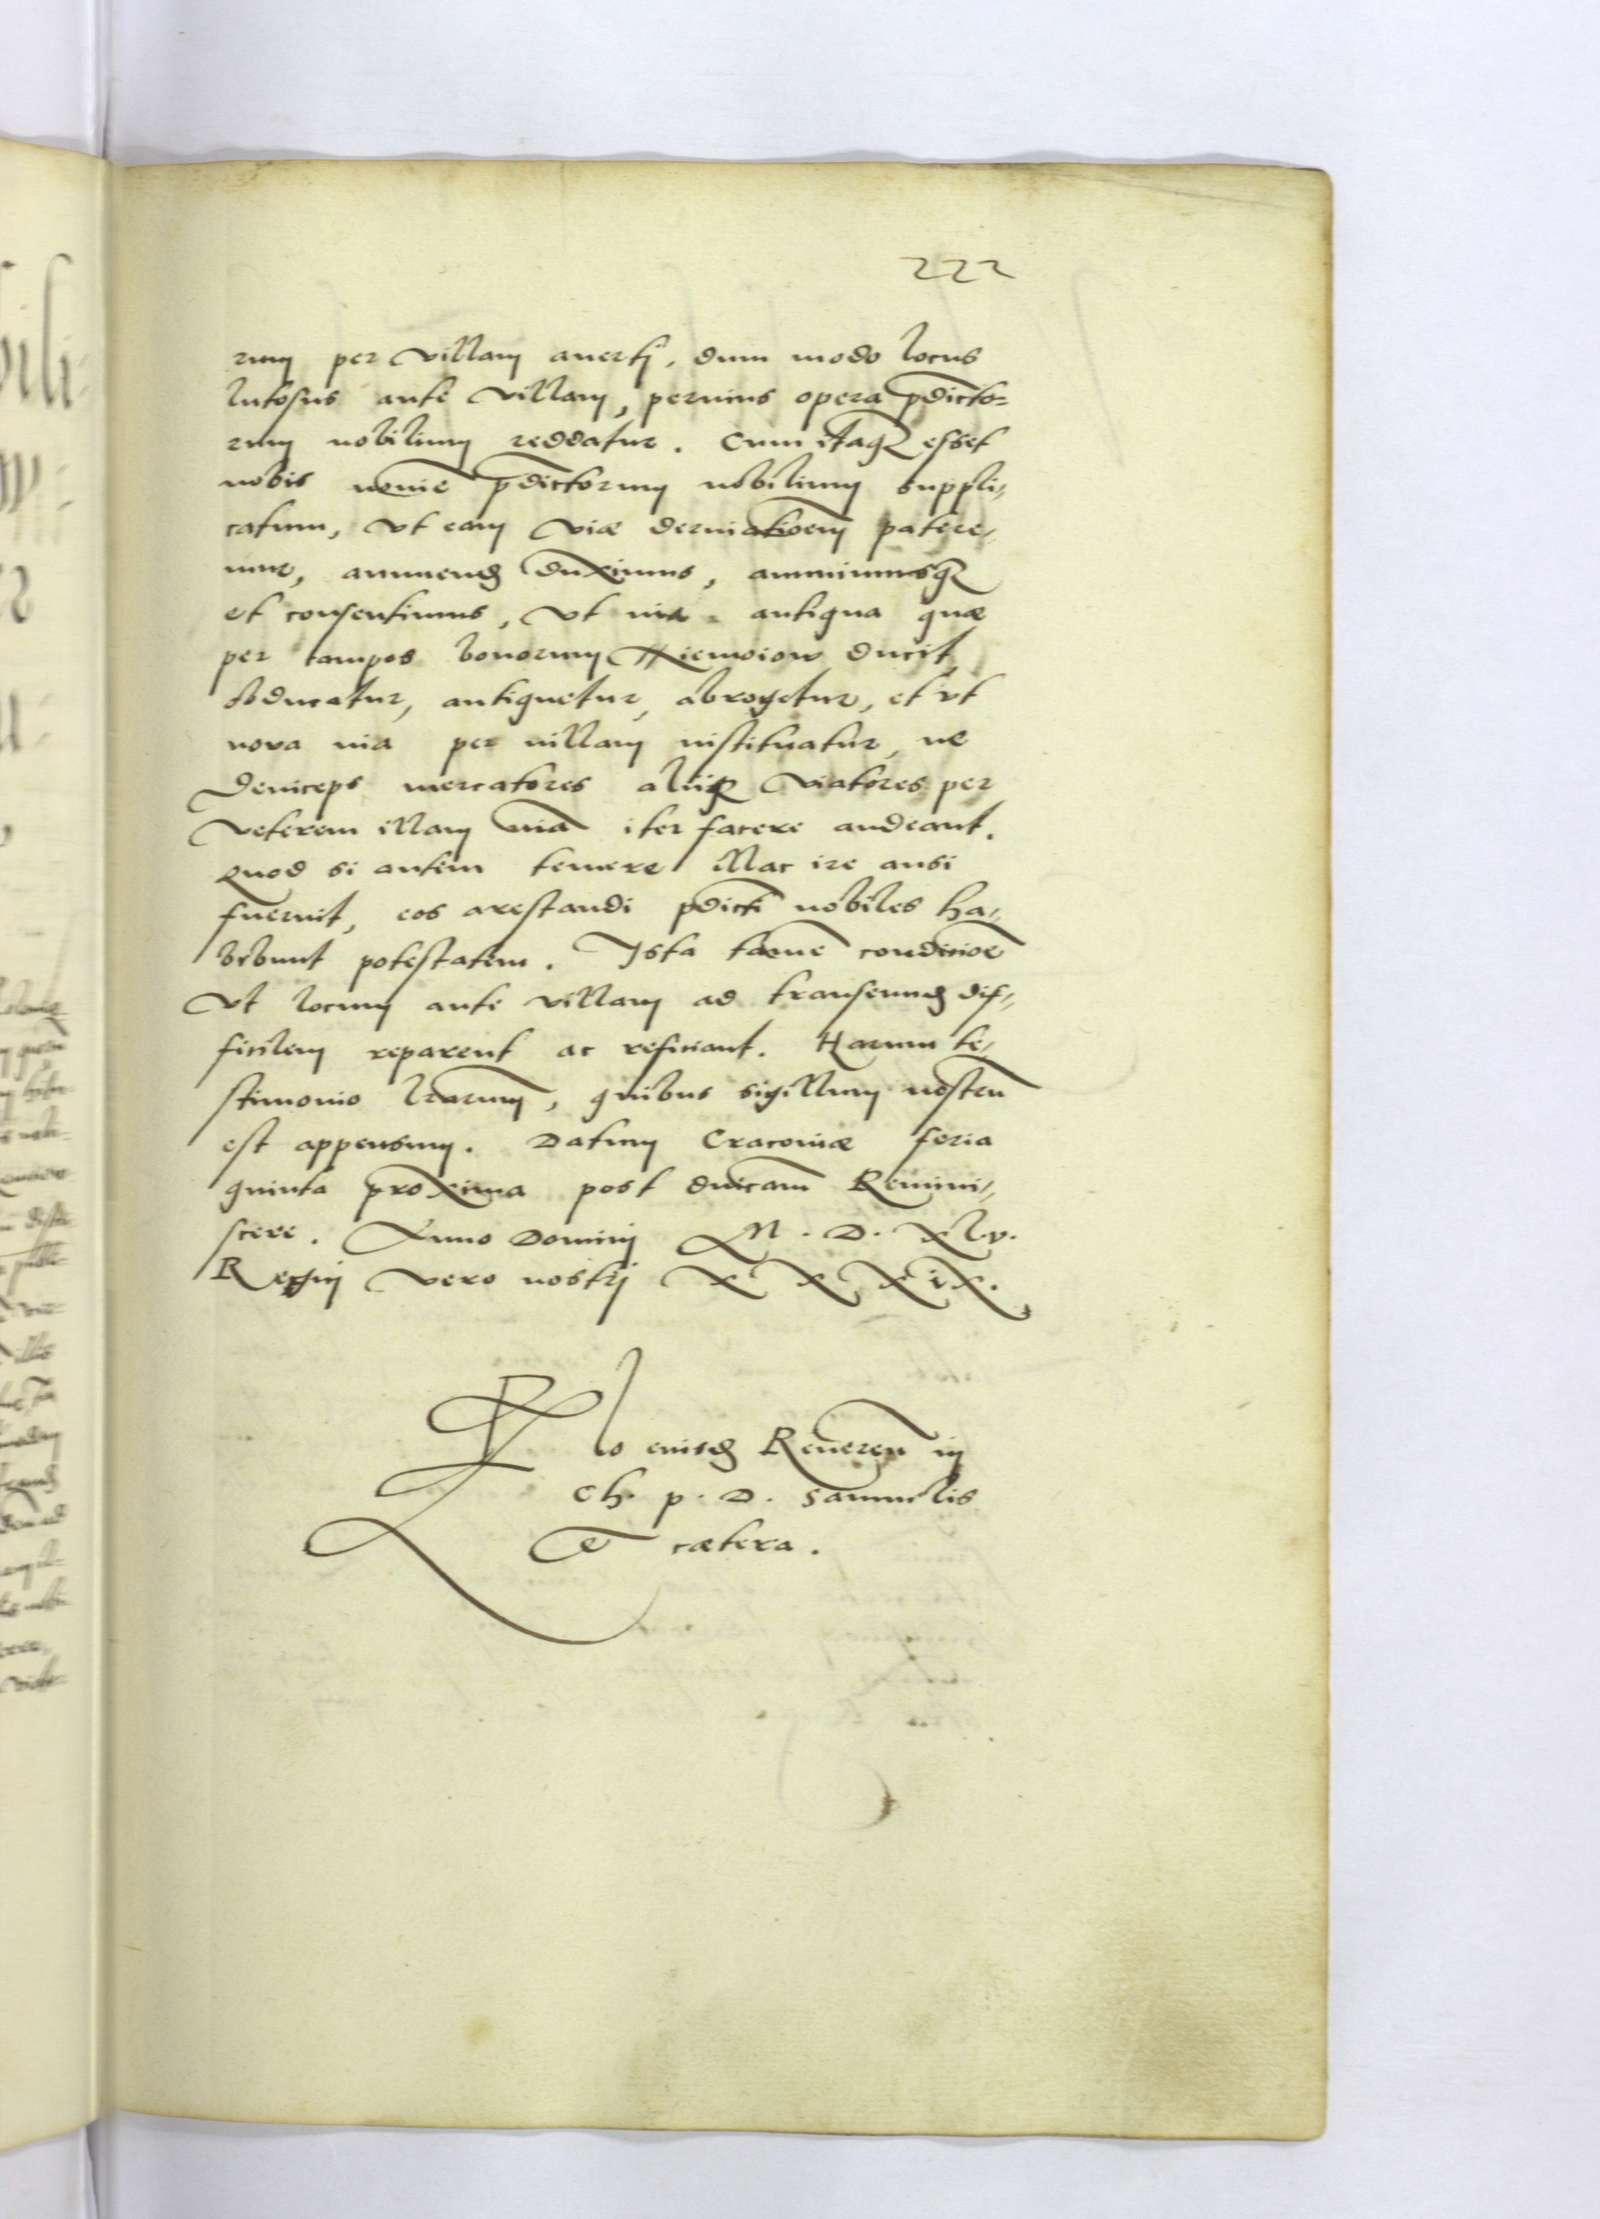 222
rum per villam averti, dum modo locus
lutosus ante villam, pervius opera pdicto=
rum nobilium reddatur. Cum itaq esset
nobis nomie pdictorum nobilium suppli,,
catum, vt eam viæ derivatioem patere,,
mur, annuend duximus, annuimusq
et consentimus, vt via antiqua quæ
per campos bonorum Niemoiow ducit
obducatur, antiquetur, abrogetur, et vt
nova via per villam instituatur, ne
deinceps mercatores aliiq viatores per
veterem illam via iter facere audeant.
Quod si autem temere illac ire ausi
fuerint, eos arestandi pdicti nobiles ha,,
bebunt potestatem. Ista tame condicioe
Vt locum ante villam ad transeund dif,,
ficilem reparent ac reficiant. Harum te,,
stimonio lrarum, quibus sigillum nostru
est appensum. Datum Cracoviæ feria
quinta proxima post dnicam Remini,,
scere. Anno Domini M. D. xlv.
Regni vero nostri xxxix.
Rlo eiusd Reveren in
Ch. p. D. Samuelis
Et cætera.